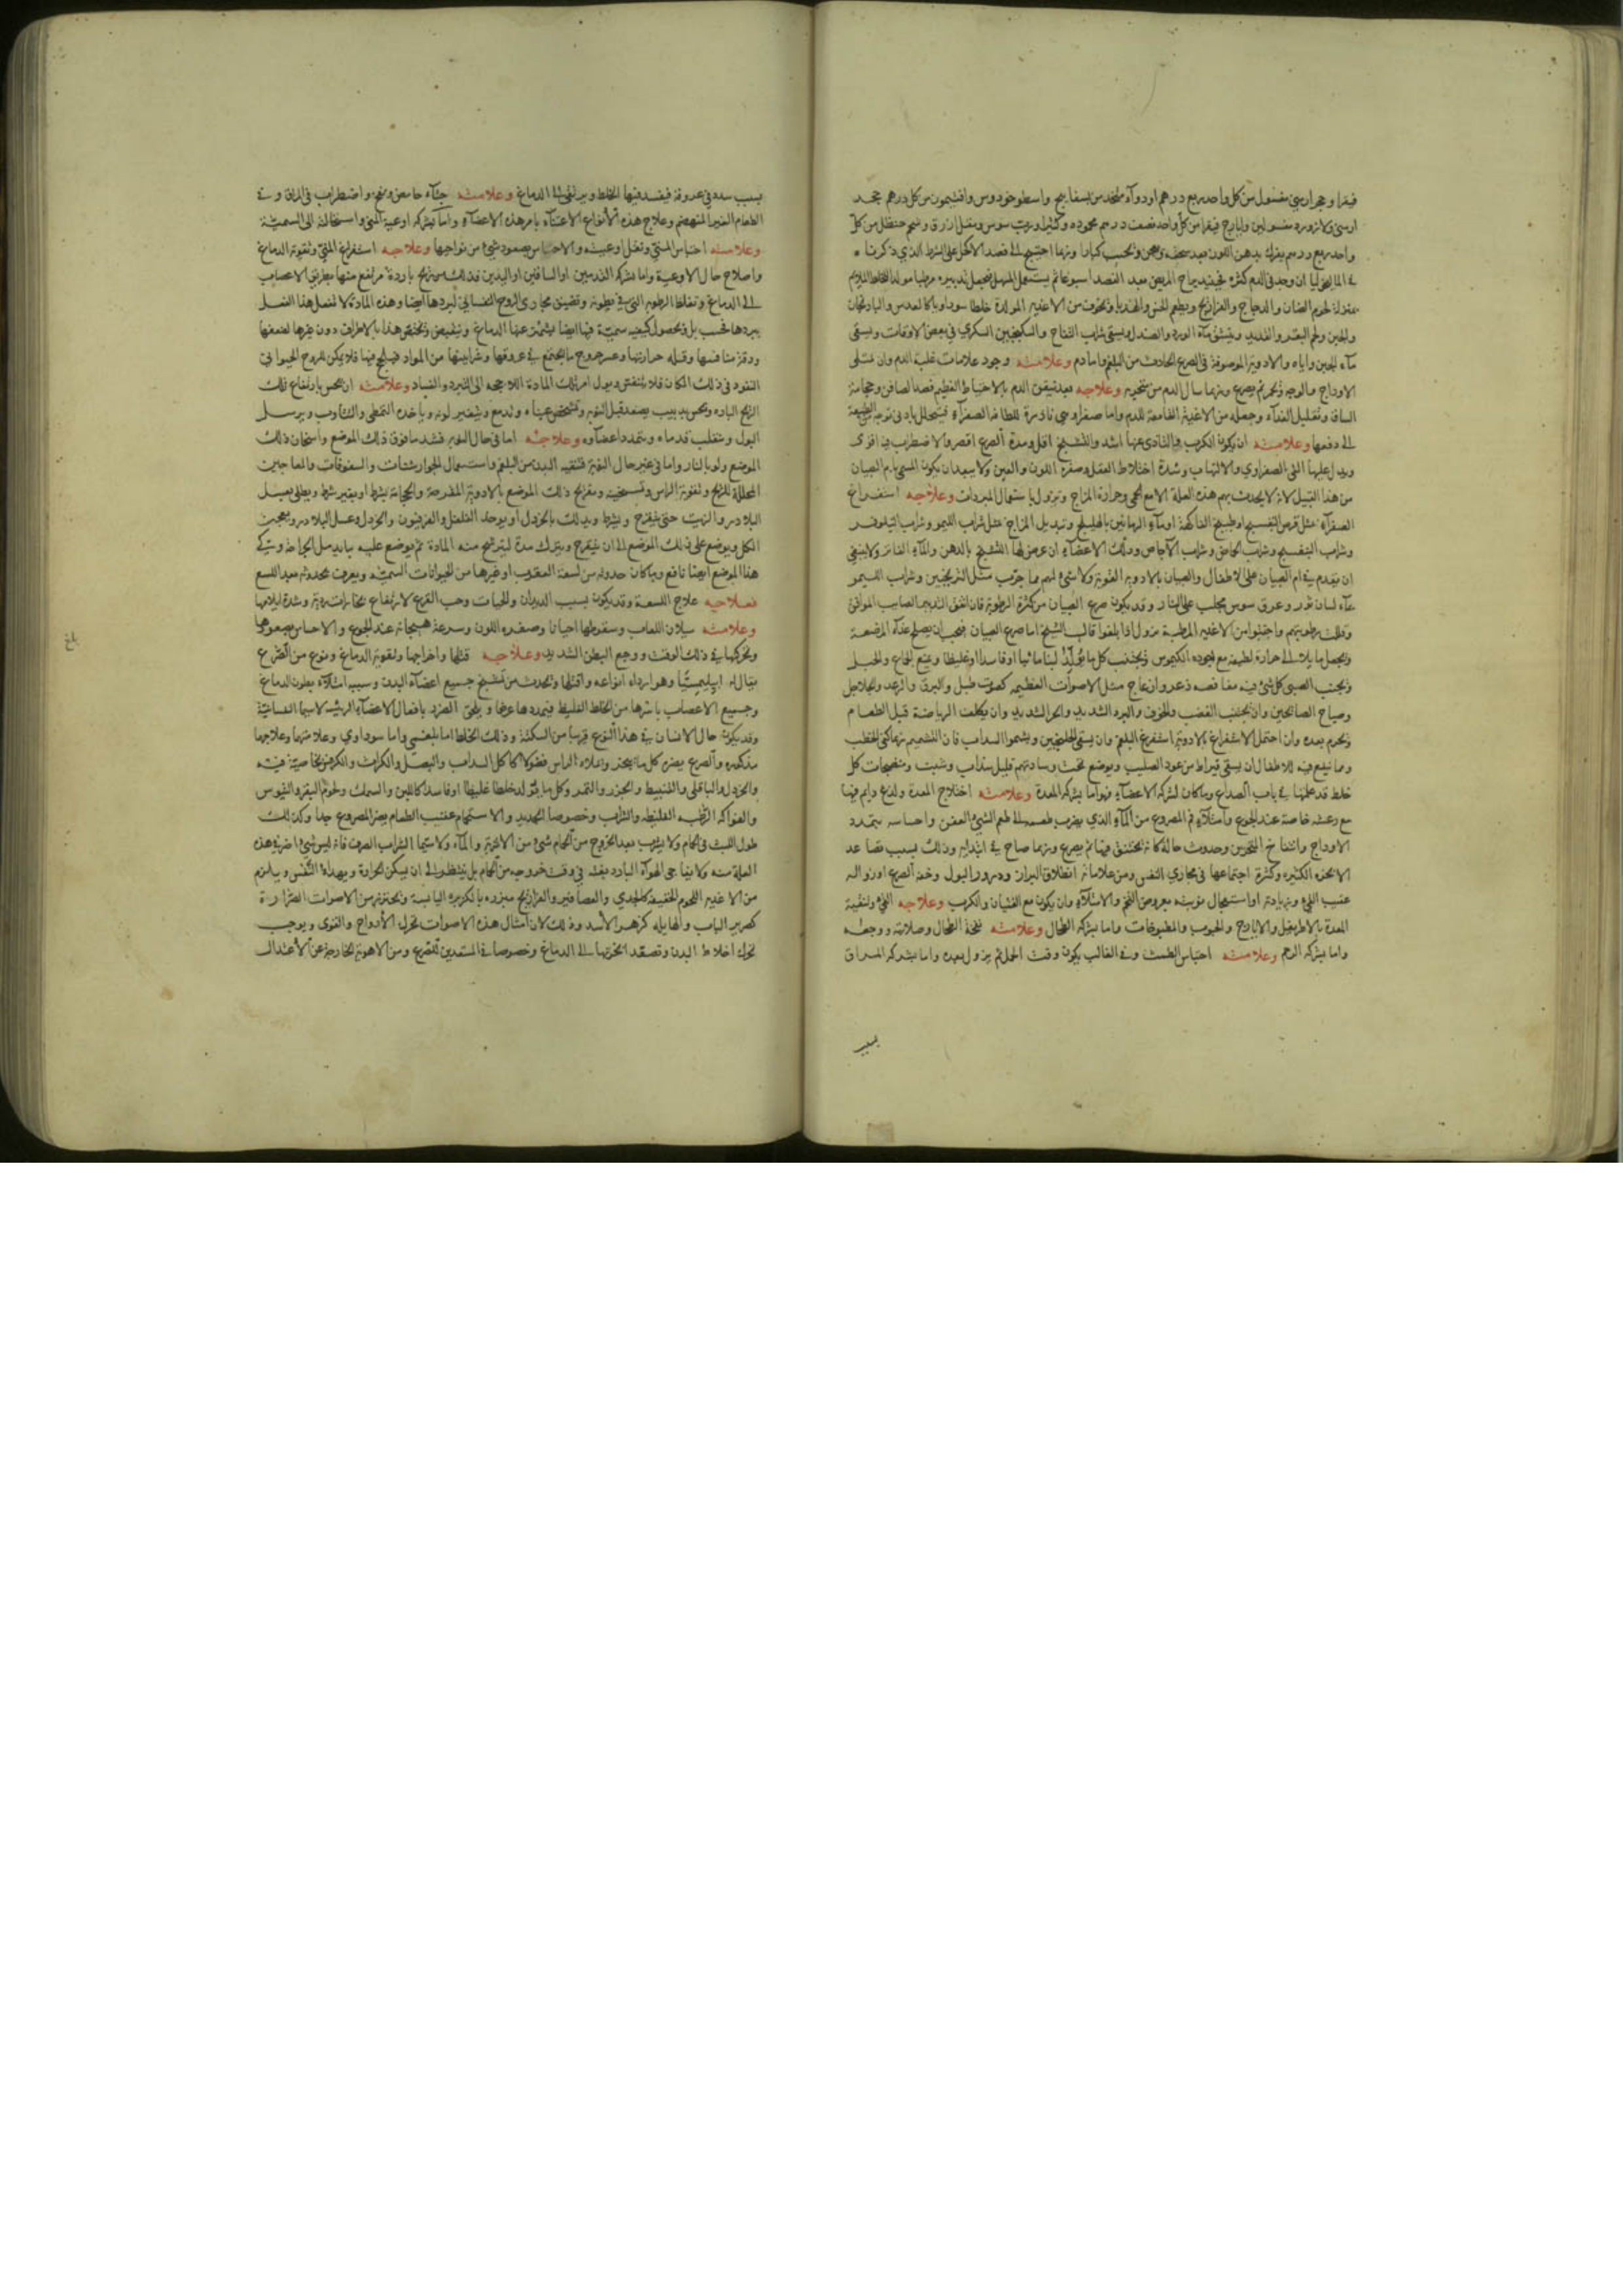 فيقرا وحجر ارمني مغسول من كل واحد ربع درهم او دوآء متخذ من بسفايج واسطوخودوس وافتيمون من كل درهم حجر
ارمني ولازورد مغسولين وايارج فيقرا من كل واحد نصف درهم محمودة وكثيرا ورب سوس ومقل ازرق وشحم حنظل من كل
واحد ربع درهم يفرك بدهن اللوز بعد سحقه ويعجن ويحبب كبارا وربما احتيج الى فصد الاكحل على الشرط الذي ذكرنا
في الماليخوليا ان وجد في الدم كثرة المريض بعد الفصد اسبوعا ثم يستعمل المسهل فيجعل تدبيره مرطبا مولدا للخلط الملايم
لحوم الضان والدجاج والفراريج ويطعم الخس والهندبا ويخوف من الاغذية المولدة خلطا سوداويا كالعدس والباذنجان
والجبن ولحم البقر والقديد وينشق مآء الورد والصندل ويسقى شراب التفاح والسكنجبين السكري في بعض الاوقات ويسقى
مآء الجبن واياه والادوية الموصوفة في الصرع الحادث من البلغم واما دم وعلامته وجود علامات غلبة الدم وان تمتلى
الاوداج والوجه ويحمر ثم يصرع وربما سال الدم من منخريه وعلاجه بعد تيقن الدم بالاحتياط العظيم فصد الصافن وحجامة
الساق وتقليل الغذآء وجعله من الاغذية القامعة للدم واما صفرا وهي نادرة للطافة الصفرآء فيتحلل بادنى توجه الطبيعة
الى دفعها وعلامته ان يكون الكرب والتاذى عنها اشد والتشنج اقل ومدة الصرع اقصر والاضطراب فيه اقوى
ويدل عليها القى الصفراوي والالتهاب وشدة اختلاط العقل وصفرة اللون والعين ولا يبعد ان يكون المسمى بام الصبيان
من هذا القبيل لانه لا يحدث بهم هذه العلة الا مع الحمى وحرارة المزاج وتزول باستعمال المبردات وعلاجه استفراغ
الصفرآء مثل قرص البنفسج او طبيخ الفاكهة او مآء الرمانين بالهليلج وتبديل المزاج مثل شراب الليمو وشراب النيلوفر
وشراب البنفسج وشراب الحماض وشراب الاجاص ودلك الاعضآء ان عرض لها التشنج بالدهن والمآء الفاتر ولا ينبغي
ان يقدم في ام الصبيان على الاطفال والصبيان بالادوية القوية ولا شئ لهم مما جرب مثل الترنجبين وشراب الليمو
بمآء لسان ثور وعرق سوس مجلب على النار وقد يكون صرع الصبيان من كثرة الرطوبة فان اتفق التدبير الصايب الموافق
وقلت رطوبتهم واجتنبوا من الاغذية المرطبة يزول اذا بلغوا قال الشيخ اما صرع الصبيان فيجب ان يصلح غذآء المرضعة
ويجعل مايلا الى حرارة لطيفة مع جودة الكيموس ويجتنب كل ما يولد لبنا مائيا او فاسدا او غليظا ويمنع الجماع والحبل
ويجنب الصبي كل شئ فيه مغافصة ذعر وازعاج مثل الاصوات العظيمة كصوت طبل والبرق والرعد والجلاجل
وصياح الصائحين وان يجتنب الغضب والخوف والبرد الشديد والحر الشديد وان يكلف الرياضة قبل الطعام
ويحرم بعده وان احتمل الاستفراغ بالادوية استفرغ البلغم وان يسقى الجلنجبين ويشموا السداب فان التشميم ربما كفى الخطب
ومما ينفع فيه للاطفال ان يسقى قيراط من عود الصليب ويوضع تحت وسادتهم قليل سذاب وشبت ومنضجات كل
خلط قد علمتها في باب الصداع وما كان لشركة الاعضآء فهو اما بشركة المعدة وعلامته اختلاج المعدة ولذع دايم فيها
مع رعشة خاصة عند الجوع وامتلآء فم المصروع من المآء الذي يضرب طعمه الى طعم الشئ العفن واحساسه بتمدد
الاوداج وانتفاخ المنخرين وحدوث حالة كانه يختنق فيها ثم يصرع وربما صاح في ابتدائه وذلك بسبب تصاعد
الابخرة الكثيرة وكثرة اجتماعها في مجاري النفس ومن علاماته انطلاق البراز ودرور البول وخفة الصرع او زواله
عقيب القى وزيادته او استعجال نوبته بعروض التخم والامتلآء وان يكون مع الغثيان والكرب وعلاجه القى وتنقية
المعدة بالاطريفل والايارج والحبوب والمطبوخات واما بشركة الطحال وعلامته نفخة الطحال وصلابته ووجعه
واما بشركة الرحم وعلامته احتباس الطمث وفي الغالب يكون وقت الحمل ثم يزول بعده واما بشركة المراق
بسبب
بسبب سدة في عروقه فيفسد فيها الخلط ويرتقى الى الدماغ وعلامته جشآء حامض ونفخ واضطراب في المراق وقى
الطعام الغير المنهضم وعلاج هذه الانواع الاعتنآء بامر هذه الاعضآء واما بشركة اوعية المنى واستحالته الى السمية
وعلامته احتباس المنى وثقل اوعيته والاحساس بصعود شئ من نواحيها وعلاجه استفراغ المنى وتقوية الدماغ
واصلاح حال الاوعية واما بشركة القدمين او الساقين او اليدين وذلك من ريح باردة ترتفع منها بطريق الاعصاب
الى الدماغ وتغلظ الرطوبة التي في بطونه وتضيق مجارى الروح النفساني لبردها ايضا وهذه المادة لا تفعل هذا الفعل
ببردها فحسب بل وبحصول كيفية سمية فيها ايضا يشمئز عنها الدماغ وينقبض ويختص هذا بالاطراف دون غيرها لضعفها
ودقة منافسها وقلة حرارتها وعسر خروج ما يجتمع في عروقها وشرايينها من المواد فيها فلا يمكن للروح الحيواني
النفوذ في ذلك المكان فلا يتنفس ويؤول امر تلك المادة اللاحجة الى التبرد والفساد وعلامته ان يحس بارتفاع تلك
الريح الباردة ويحس بدبيب يصعد قبل النوبة وتشخص عيناه وتدمع ويتغير لونه وياخذه التمطى والتثاوب ويرسل
البول وينقلب قدماه ويتمدد اعضاؤه وعلاجه اما في حال النوبة فشد ما فوق ذلك الموضع واسخان ذلك
الموضع ولو بالنار واما في غير حال النوبة فتنقية البدن من البلغم واستعمال الجوارشنات والسفوفات والمعاجين
المحللة للريح وتقوية الراس وتسخينه ومعالجة ذلك الموضع بالادوية المقرحة والحجامة بشرط او بغير شرط ويطلى بعسل
البلادر والزيت حتى يتقرح ويشرط ويدلك بالخردل او يوخذ الفلفل والفرفيون والخردل وعسل البلادر ويعجن
الكل ويوضع على ذلك الموضع الى ان يتقرح ويترك مدة ليترشح منه المادة ثم يوضع عليه ما يدمل
هذا الموضع ايضا نافع وما كان حدوثه من لسعة العقرب او غيرها من الحيوانات السمية ويعرف بحدوثه بعد اللسع
فعلاجه علاج اللسعة وقد يكون بسبب الديدان والحيات وحب القرع لارتفاع بخارات ردية وشدة ايلامها
وعلامته سيلان اللعاب وسقوطها احيانا وصفرة اللون وسرعة هيجانه عند الجوع والاحساس بصعودها
وتحركها في ذلك الوقت ووجع البطن الشديد وعلاجه قتلها واخراجها وتقوية الدماغ ونوع من الصرع
يقال له ابيليمسيا وهو اردأ انواعه واقتلها ويحدث من تشنج جميع اعضآء البدن وسببه امتلآء بطون الدماغ
وجميع الاعصاب باسرها من الخلط الغليظ فيمددها عرضا ويلحق الضرر بافعال الاعضآء الرئيسة لاسيما النفسانية
وقد يكون حال الانسان في هذا النوع قريبا من السكتة وذلك الخلط اما بلغمى واما سوداوي وعلامتهما وعلاجهما
مذكورة والصرع يضره كل ما يبخر واملاء الراس فضولا كاكل السداب والبصل والكراث والكرفس بخاصية فيه
والخردل والباقلى والقنبيط والجزر والتمر وكل ما يولد خلطا غليظا او فاسدا كاللبن والسمك ولحوم البقر والتيوس
والفواكه الرطبة الغليظة والشراب وخصوصا الحديد والاستحمام عقيب الطعام يضر المصروع جدا وكذلك
طول اللبث في الحمام ولا يشرب بعد الخروج من الحمام شئ من الاشربة والمآء ولاسيما الشراب الصرف فانه ليس شئ اضر في هذه
العلة منه ولا يفاجى الهوآء البارد بغتة في وقت خروجه من الحمام بل ينتظر الى ان يسكن الحرارة ويهدأ النفس ويلزم
من الاغذية اللحوم الخفيفة كالجدي والعصافير والفراريج مبزرة بالكزبرة اليابسة ويحترز من الاصوات الضرارة
كصرير الباب والهايلة كزهر الاسد وذلك لان امثال هذه الاصوات تحرك الارواح والقوى ويوجب
تحرك اخلاط البدن وتصعد ابخرتها الى الدماغ وخصوصا في المستعدين للصرع ومن الاهوية الخارجة عن الاعتدال
بلغ